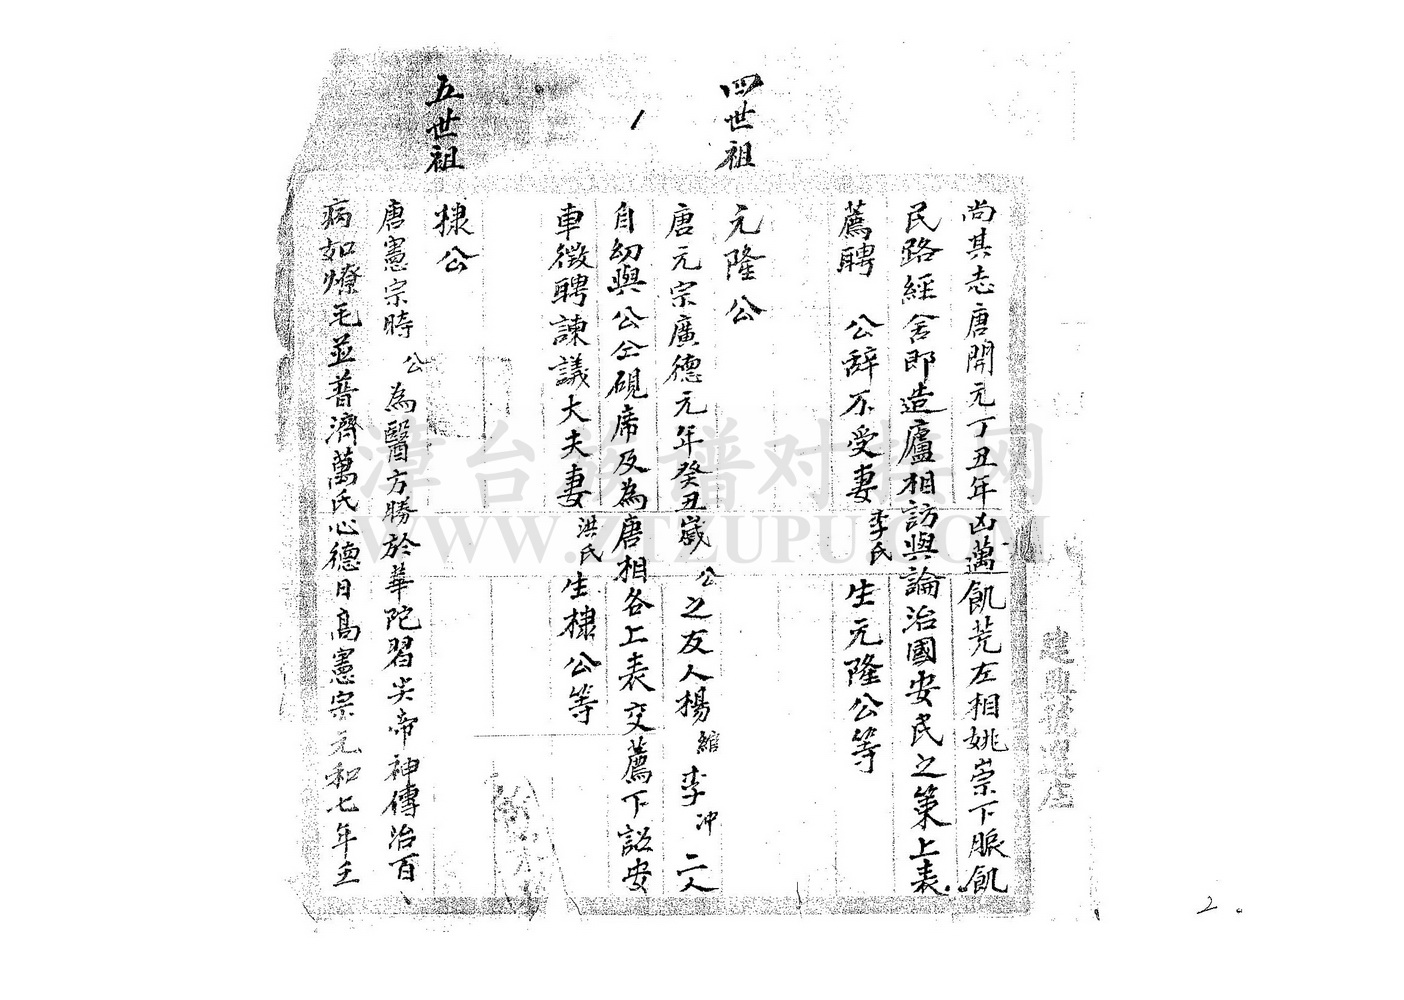 尚其志唐開元丁丑年凶邁飢荒左相姚崇下賑飢
民路經舍即造廬相訪與論治國安民之策上表
薦聘 公辭不受妻李氏生元隆公等
四世祖
元隆公
唐元宗廣德元年癸丑歲公之友人楊綰李冲二人
自幼與公仝硯席及為唐相各上表交薦下詔安
車徵聘諫議大夫妻洪氏生棣公等
五世祖
棣公
唐憲宗時公為醫方勝於華陀習炎帝神傳治百
病如燎毛並普濟萬氏心德日高憲宗元和七年壬
建興號選店
漳台族谱对接网
WWW.ZTZUPU.COM
2.